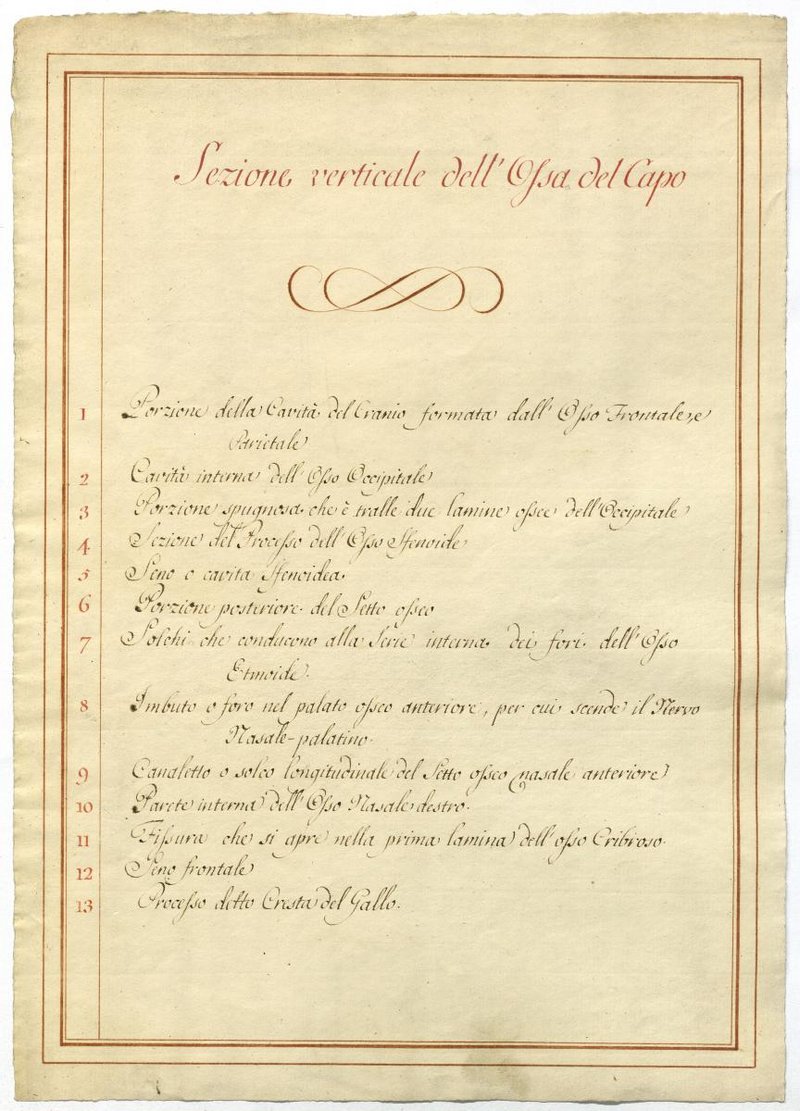 Sezione verticale dell' Ossa del Capo
1 Porzione della Cavità del Cranio formata dall' Osso Frontale, e
Parietale
2 Cavità interna dell' Osso Occipitale
3 Porzione spugnosa che è tralle due lamine ossee dell' Occipitale
4 Sezione del Processo dell' Osso Sfenoide
5 Seno o cavità sfenoidea.
6 Porzione posteriore del Setto osseo
7 Solchi che conducono alla Serie interna dei fori dell' Osso
Etmoide.
8 Imbuto o foro nel palato osseo anteriore, per cui scende il Nervo
Nasale-palatino.
9 Canaletto o solco longitudinale del Setto osseo nasale anteriore
10 Parete interna dell' Osso Nasale destro.
11 Fissura che si apre nella prima lamina dell' osso Cribroso.
12 Seno frontale
13 Processo detto Cresta del Gallo.